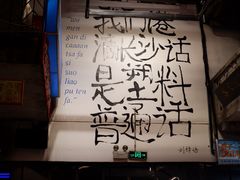 "wo
men
gan di
caaaan
tsa fa
si
sao
liao
pu ten
fa."
我们港
滴长沙话
是塑料
普通话